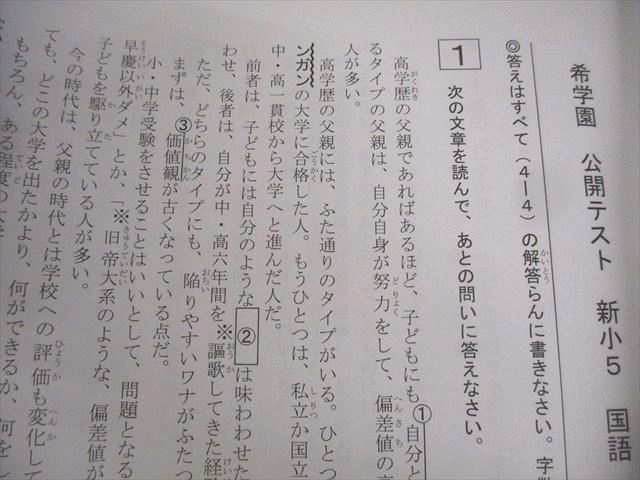 希学園 公開テスト 新小5 国語
◎答えはすべて(4―4)の解答らんに書きなさい。字数
1 次の文章を読んで、あとの問いに答えなさい。
高学歴の父親であればあるほど、子どもにも①自分と
るタイプの父親は、自分自身が努力をして、偏差値の
人が多い。
高学歴の父親には、ふた通りのタイプがいる。ひとつ
ンガンの大学に合格した人。もうひとつは、私立か国立
中・高一貫校から大学へと進んだ人だ。
前者は、子どもには自分のような②は味わわせた
わせ、後者は、自分が中・高六年間を※謳歌してきた経
ただ、どちらのタイプにも、陥りやすいワナがふたつ
まずは、③価値観が古くなっている点だ。
小・中学受験をさせることはいいとして、問題となる
早慶以外ダメ」とか、「※旧帝大系のような、偏差値が
子どもを駆り立てている人が多い。
今の時代は、父親の時代とは学校への評価も変化して
ても、どこの大学を出たかより、何ができるか、何を
もちろん、ある程度の